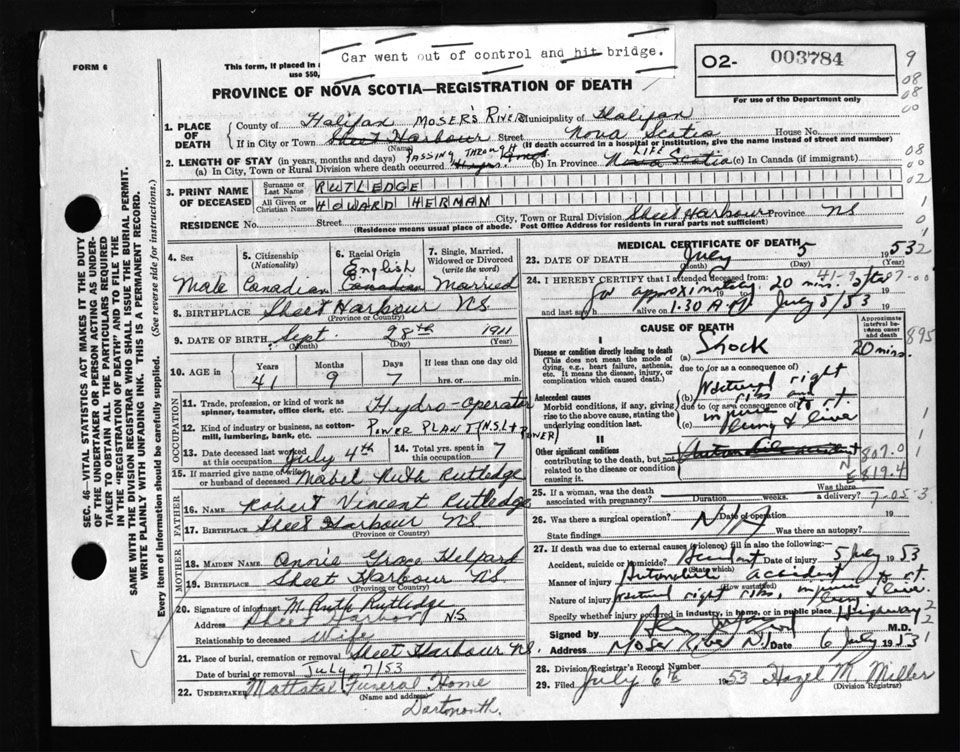 FORM 6
This form, if placed in a
use $50,
Car went out of control and hit bridge.
02- 003784
For use of the Department only
PROVINCE OF NOVA SCOTIA—REGISTRATION OF DEATH
1. PLACE OF DEATH
County of Halifax MOSER'S RIVER Municipality of Halifax
If in City or Town Sheet Harbour Street Nova Scotia House No.
(Name) (If death occurred in a hospital or institution, give the name instead of street and number)
2. LENGTH OF STAY (in years, months and days) PASSING THROUGH LIFE
(a) In City, Town or Rural Division where death occurred (b) In Province Nova Scotia (c) In Canada (if immigrant)
3. PRINT NAME OF DECEASED
Surname or Last Name RUTLEDGE
All Given or Christian Names HOWARD HERMAN
RESIDENCE No. Street City, Town or Rural Division Sheet Harbour Province NS
(Residence means usual place of abode. Post Office Address for residents in rural parts not sufficient)
4. Sex Male
5. Citizenship (Nationality) Canadian
6. Racial Origin English Canadian
7. Single, Married, Widowed or Divorced (write the word) Married
8. BIRTHPLACE Sheet Harbour NS
(Province or Country)
9. DATE OF BIRTH Sept 28th 1911
(Month) (Day) (Year)
10. AGE in Years 41 Months 9 Days 7 If less than one day old hrs. or min.
OCCUPATION
11. Trade, profession, or kind of work as spinner, teamster, office clerk, etc. Hydro-Operator
12. Kind of industry or business, as cotton-mill, lumbering, bank, etc. POWER PLANT (N.S.L + POWER)
13. Date deceased last worked at this occupation July 4th
14. Total yrs. spent in this occupation 7
15. If married give name of wife or husband of deceased Mabel Ruth Rutledge
FATHER
16. NAME Robert Vincent Rutledge
17. BIRTHPLACE Sheet Harbour NS
(Province or Country)
MOTHER
18. MAIDEN NAME Annie Grace Helpard
19. BIRTHPLACE Sheet Harbour NS
(Province or Country)
20. Signature of informant M. Ruth Rutledge
Address Sheet Harbour N.S.
Relationship to deceased Wife
21. Place of burial, cremation or removal Sheet Harbour NS.
Date of burial or removal July 7/53
22. UNDERTAKER Mattatal Funeral Home
(Name and address)
Dartmouth.
MEDICAL CERTIFICATE OF DEATH
23. DATE OF DEATH July 5 1953
(Month) (Day) (Year)
24. I HEREBY CERTIFY that I attended deceased from:
for approximately 20 mins. after 19
and last saw h alive on 1.30 A.M. July 5/53 19
CAUSE OF DEATH
Approximate interval between onset and death
I
Disease or condition directly leading to death (a) Shock 20 mins.
(This does not mean the mode of dying, e.g., heart failure, asthenia, etc. It means the disease, injury, or complication which caused death.)
due to (or as a consequence of)
Antecedent causes (b) fractured right ribs
Morbid conditions, if any, giving rise to the above cause, stating the underlying condition last.
due to (or as a consequence of)
(c) injury to rt. lung & liver
II
Other significant conditions
contributing to the death, but not related to the disease or condition causing it.
Automobile accident
25. If a woman, was the death associated with pregnancy? Duration weeks. Was there a delivery?
26. Was there a surgical operation? Date of operation 19
State findings Was there an autopsy?
27. If death was due to external causes (violence) fill in also the following:
Accident, suicide or homicide? Accident Date of injury 5 July 1953
(State which)
Manner of injury Automobile accident
(How sustained)
Nature of injury fractured right ribs, injury to rt. lung & liver.
Specify whether injury occurred in industry, in home, or in public place Highway
Signed by M.D.
Address Moser River NS Date 6 July 1953
28. Division Registrar's Record Number
29. Filed July 6th 1953 Hazel M. Miller
(Division Registrar)
SEC. 46—VITAL STATISTICS ACT MAKES IT THE DUTY
OF THE UNDERTAKER OR PERSON ACTING AS UNDER-
TAKER TO OBTAIN ALL THE PARTICULARS REQUIRED
IN THE "REGISTRATION OF DEATH" AND TO FILE THE
SAME WITH THE DIVISION REGISTRAR WHO SHALL ISSUE THE BURIAL PERMIT.
WRITE PLAINLY WITH UNFADING INK. THIS IS A PERMANENT RECORD.
Every item of information should be carefully supplied. (See reverse side for instructions.)